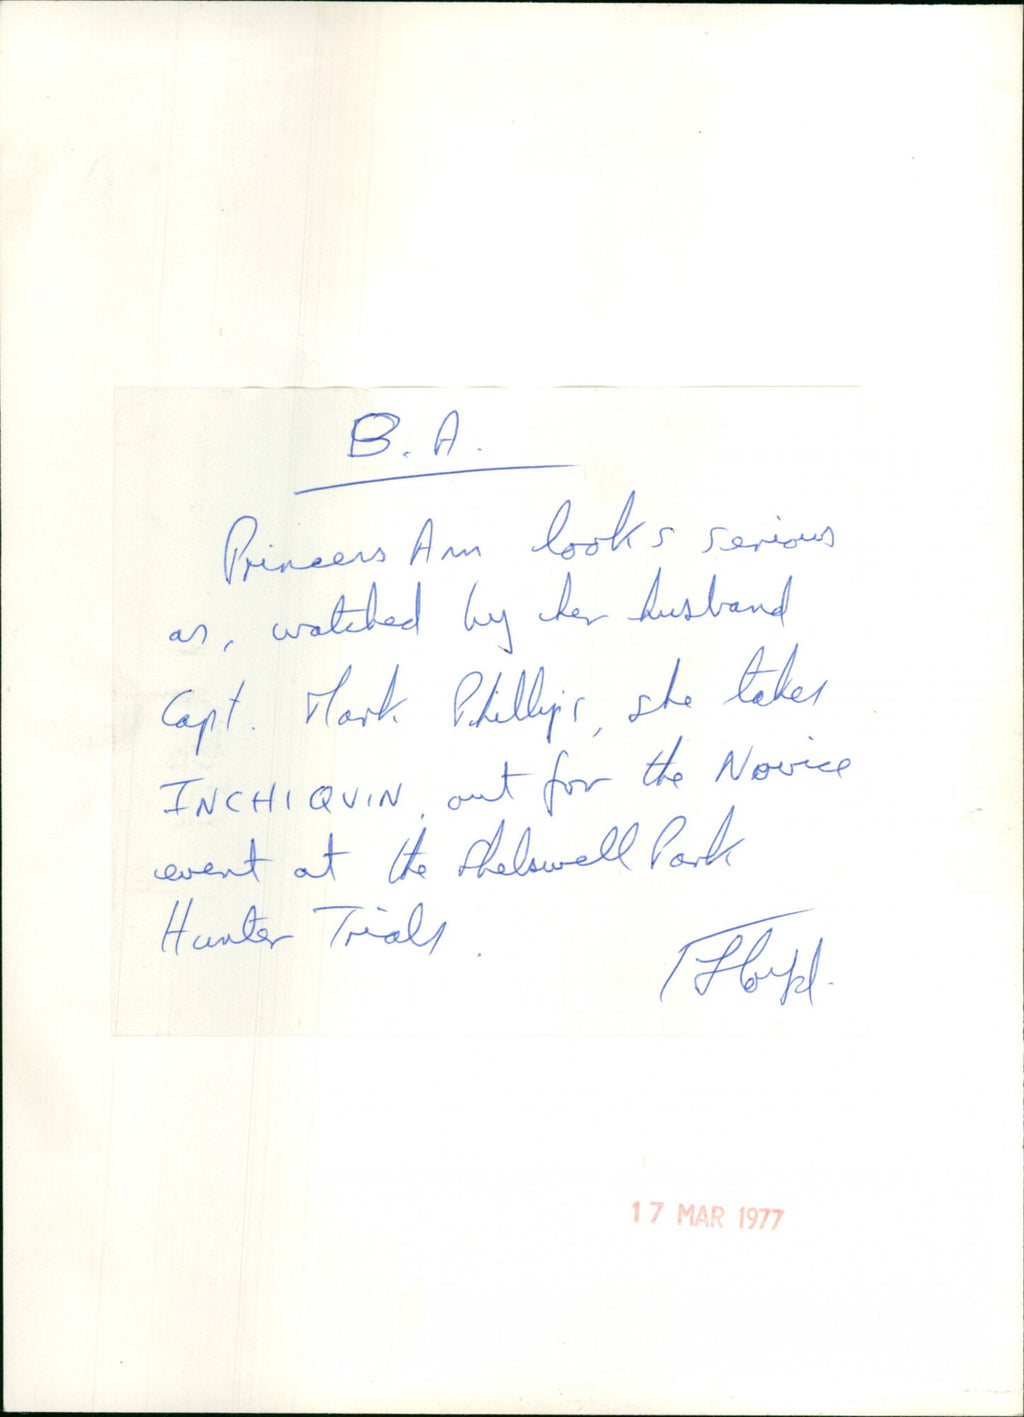 B.A.
Princess Ann looks serious
as, watched by her husband
Capt. Mark Phillips, she takes
INCHIQUIN, out for the Novice
event at the Shelswell Park
Hunter Trials.
T Floyd.
17 MAR 1977